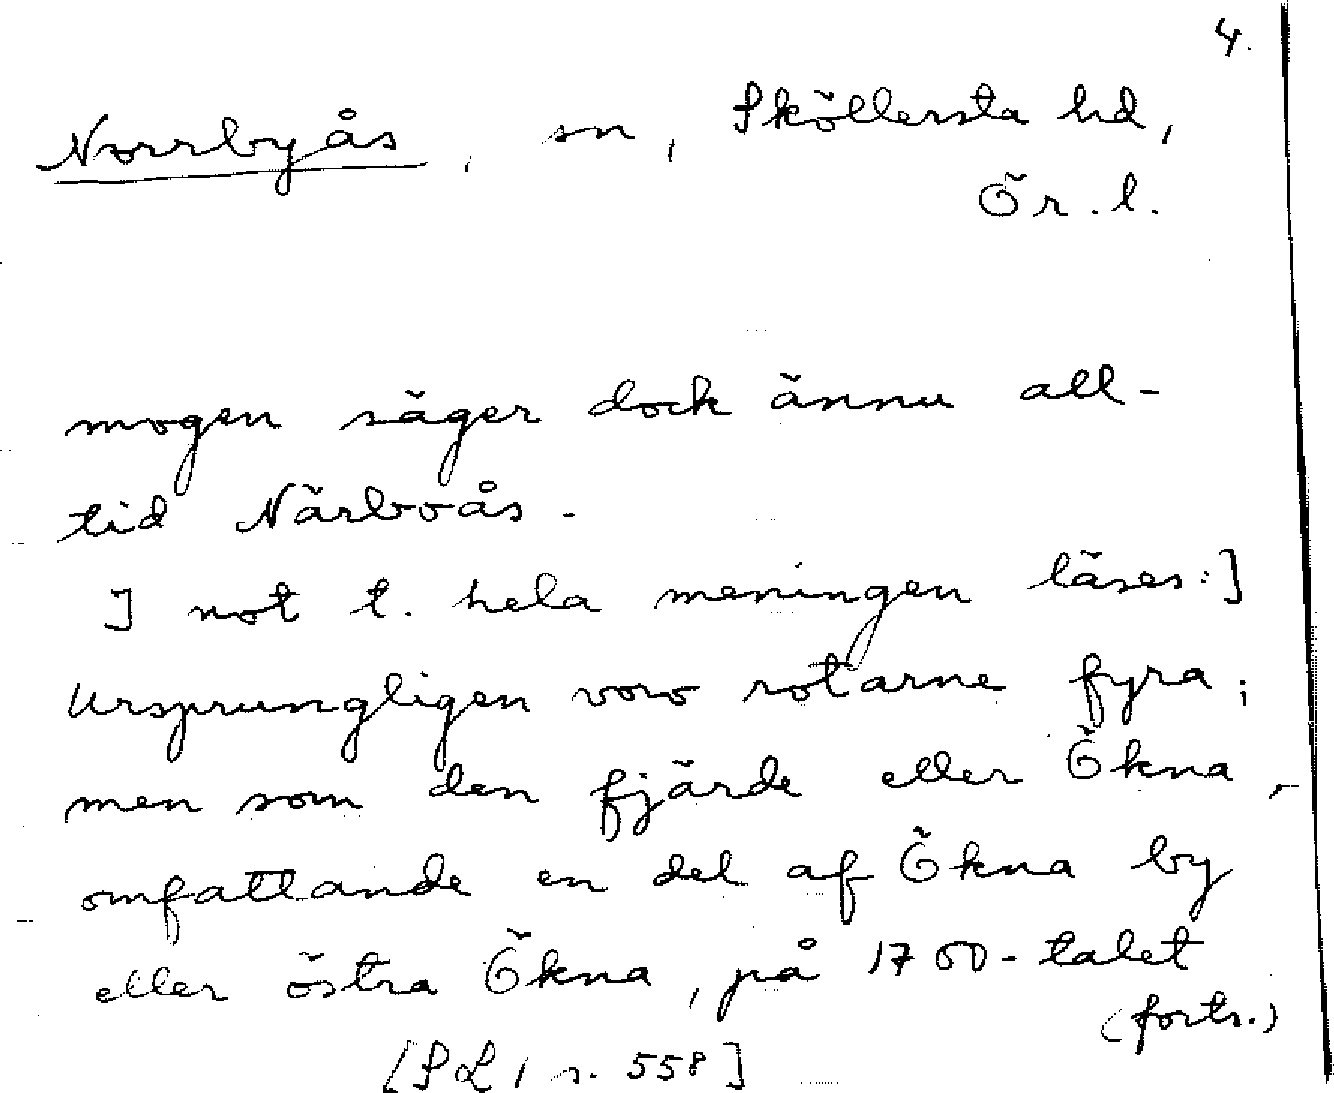 4.
Norrbyås, sn, Sköllersta hd,
Ör. l.
mogen säger dock ännu all-
tid Närboås.
I not t. hela meningen läses:]
Ursprungligen voro rotarne fyra;
men som den fjärde eller Ökna,
omfattande en del af Ökna by
eller östra Ökna, på 1700-talet
(forts.)
[SL 1 s. 558]